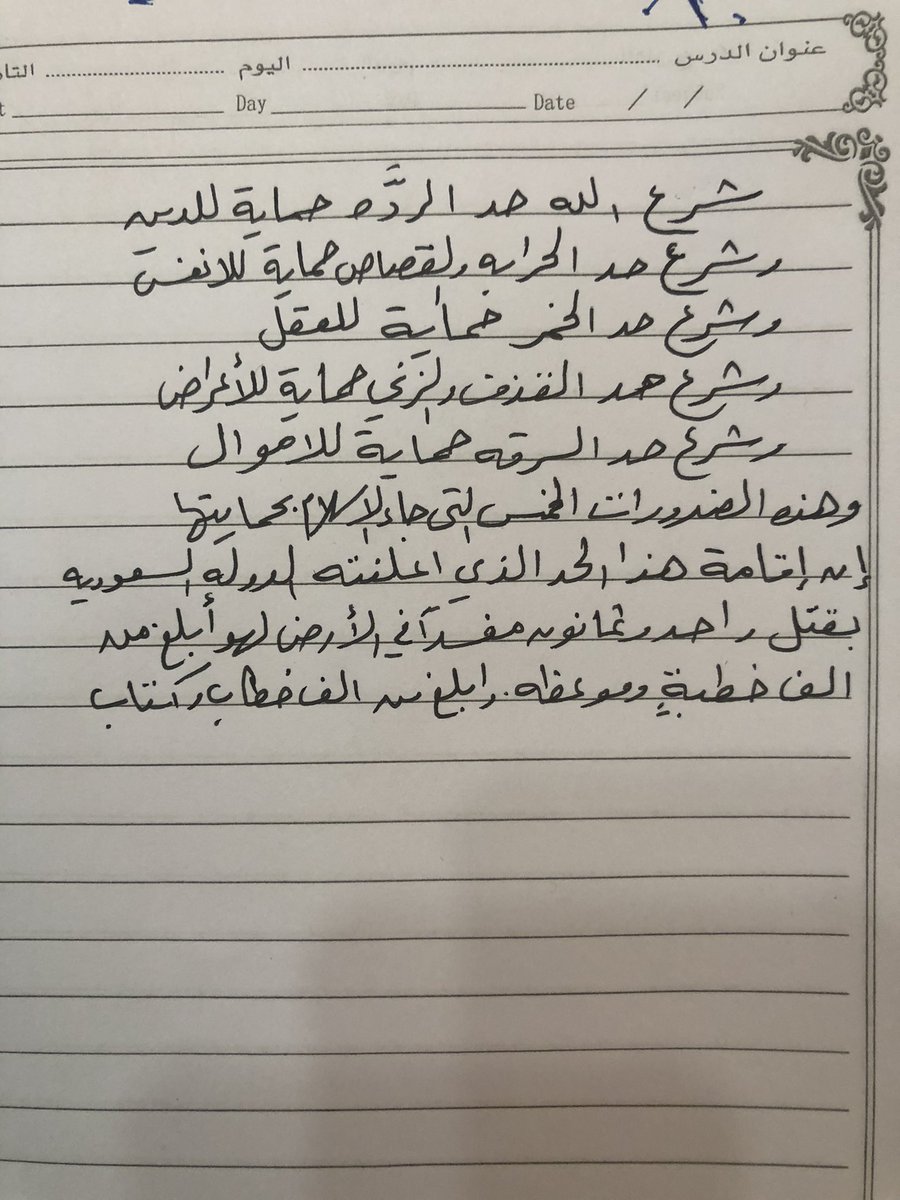 عنوان الدرس ........ اليوم ........ التا
t ________ Day ________ Date / /
شرع الله حد الردَّه حماية للدين
وشرع حد الحرابه والقصاص حماية للانفس
وشرع حد الخمر حماية للعقل
وشرع حد القذف والزنى حماية للأعراض
وشرع حد السرقه حماية للاموال
وهذه الضرورات الخمس التي جاء الإسلام بحمايتها
إن إقامة هذا الحد الذي اعلنته الدوله السعوديه
بقتل واحد وثمانون مفسداً في الأرض لهو أبلغ من
الف خطبةٍ وموعظه. وابلغ من الف خطاب وكتاب